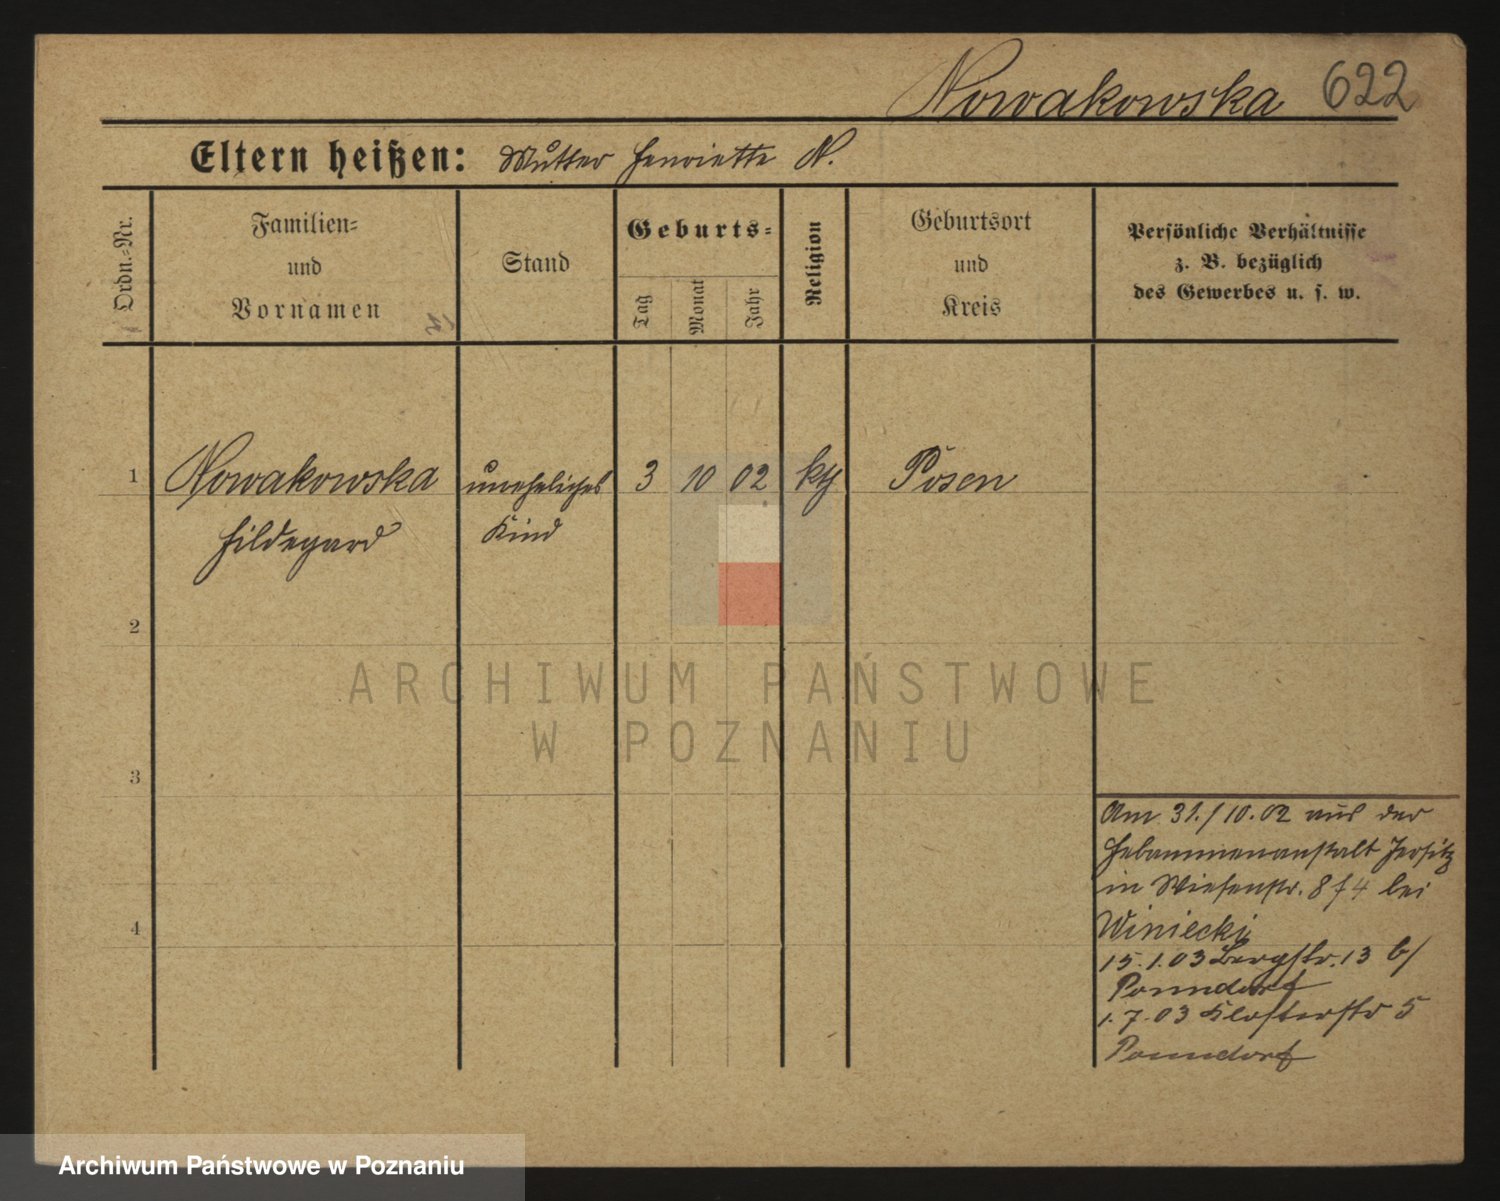 Nowakowska 622
Eltern heißen: Mutter Henriette N.
Ordn.-Nr.
Familien=
und
Vornamen
Stand
Geburts=
Tag
Monat
Jahr
Religion
Geburtsort
und
Kreis
Persönliche Verhältnisse
z. B. bezüglich
des Gewerbes u. s. w.
1 Nowakowska uneheliches 3 10 02 Posen
Hildegard Kind
2
3
4
Am 31./10.02 aus der
Hebammenanstalt Jersitz
in Wiesenstr. 8 bei
Winiecki
15.1.03 Bergstr. 13 b/
Ponndorf
1.7.03 Klosterstr 5
Ponndorf
ARCHIWUM PAŃSTWOWE
W POZNANIU
Archiwum Państwowe w Poznaniu